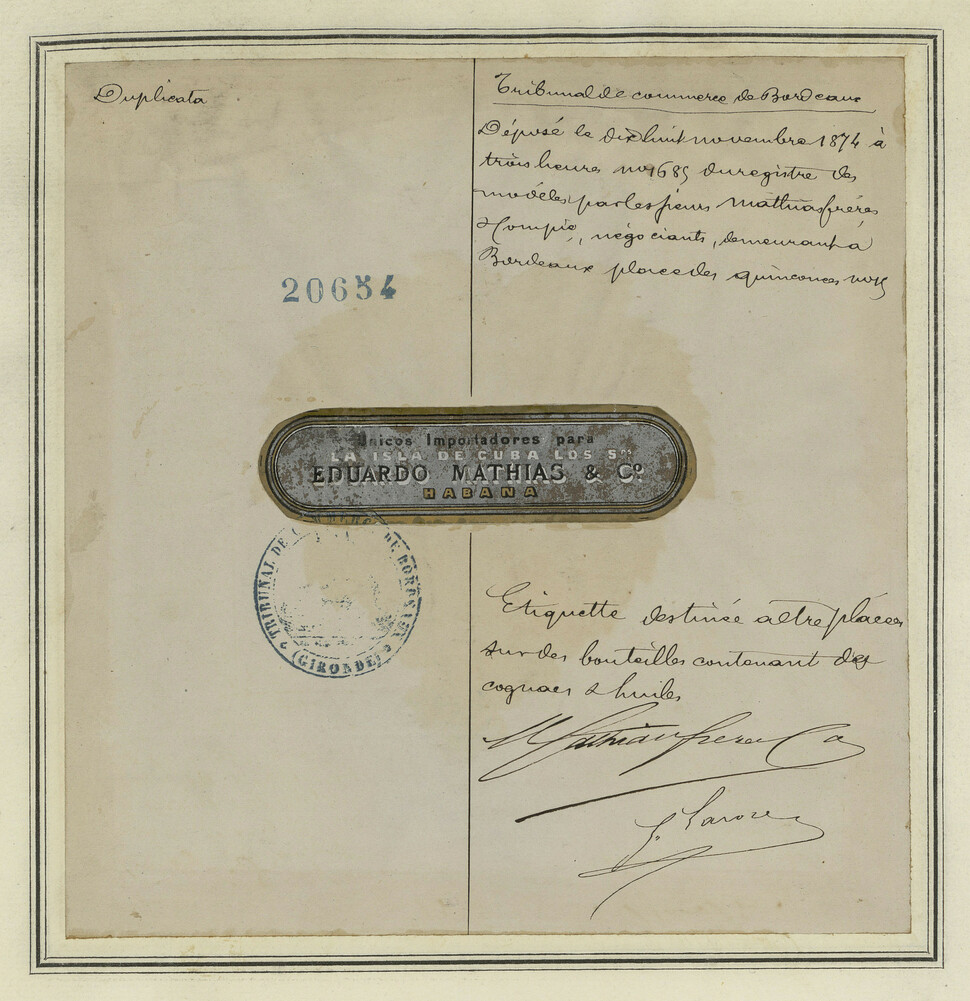 Duplicata
Tribunal de commerce de Bordeaux
Déposé le dix huit novembre 1874 à
trois heures no 1685 du registre des
modèles par les sieurs Mathias frères
& Compie, négociants, demeurant à
Bordeaux place des quinconces no 5
20654
Unicos Importadores para
LA ISLA DE CUBA LOS Sres
EDUARDO MATHIAS & Co
HABANA
TRIBUNAL DE COMMERCE DE BORDEAUX
(GIRONDE)
Etiquette destinée a être placée
sur des bouteilles contenant des
cognacs & huiles
Mathias freres Co